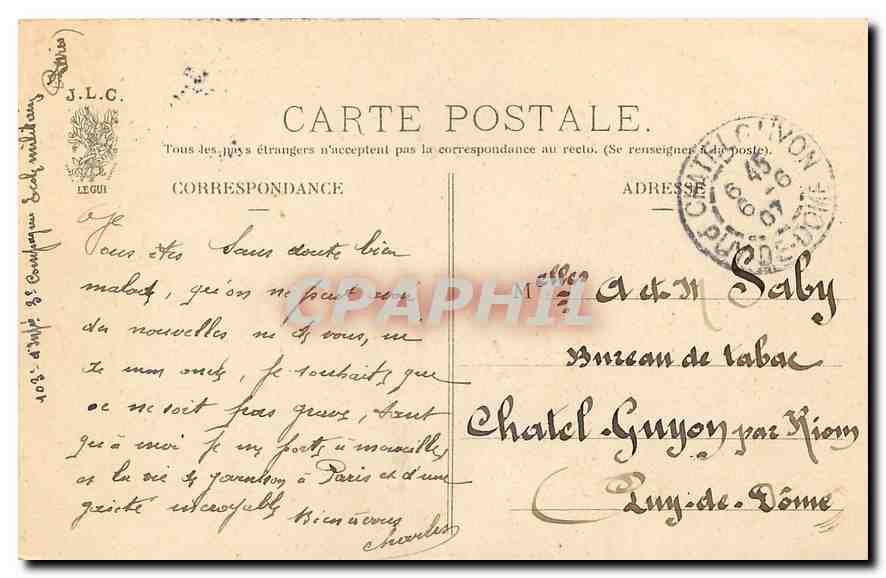 J.L.C.
LE GUI
(Paris)
103e d'Infie 3e Compagnie Ecole militaire
CARTE POSTALE.
Tous les pays étrangers n'acceptent pas la correspondance au recto. (Se renseigner à la poste).
CORRESPONDANCE
ADRESSE
CHATEL GUYON
6 45
6 -6
07
PUY-DE-DOME
Vous êtes sans doute bien
malade, qu'on ne peut avoir
des nouvelles ni de vous, ni
de mon oncle, je souhaite que
ce ne soit pas grave, tant
qu'à moi je me porte à merveilles
et la vie de garnison à Paris est d'une
gaieté incroyable
Bien à vous
Charles
Melles A et M Saby
Bureau de tabac
Chatel-Guyon par Riom
Puy-de-Dôme
CPAPHIL